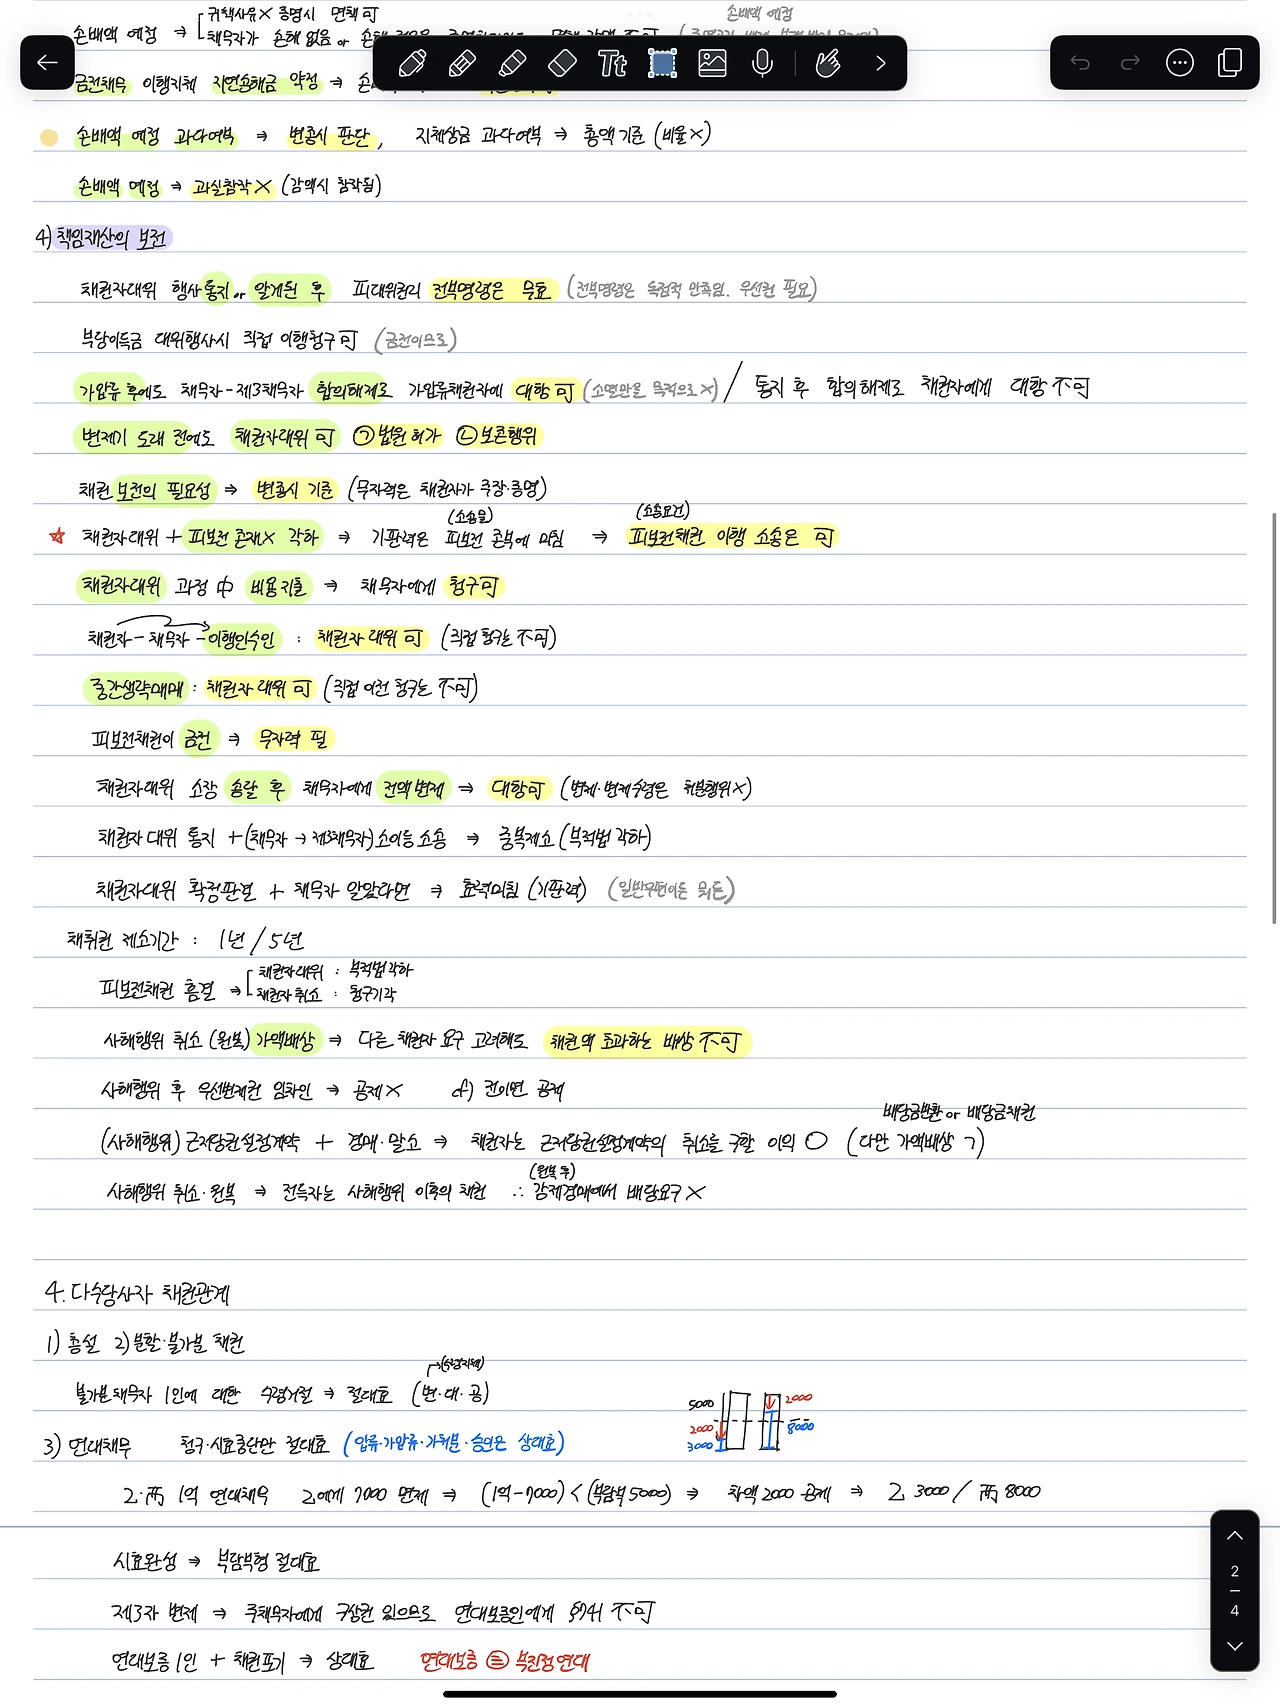 손배액 예정 ⇒ 귀책사유× 증명시 면책 可
채무자가 손해 없음 or 손해
손배액 예정
금전채무 이행지체 지연손해금 약정 ⇒
Tt
손배액 예정 과다여부 ⇒ 변종시 판단, 지체상금 과다여부 → 총액기준 (비율×)
손배액 예정 ⇒ 과실참작× (감액시 참작됨)
4) 책임재산의 보전
채권자대위 행사통지 or 알게된 후 피대위권리 전부명령은 무효 (전부명령은 독점적 만족임. 우선권 필요)
부당이득금 대위행사시 직접 이행청구 可 (금전이므로)
가압류 후에도 채무자-제3채무자 합의해제로 가압류채권자에 대항 可 (소멸만을 목적으로×) / 통지 후 합의해제로 채권자에게 대항 不可
변제기 도래 전에도 채권자대위 可 ㉠법원허가 ㉡보존행위
채권 보전의 필요성 ⇒ 변종시 기준 (무자력은 채권자가 주장·증명)
(소송물) (소송요건)
☆ 채권자대위 + 피보전 존재× 각하 ⇒ 기판력은 피보전 존부에 미침 ⇒ 피보전채권 이행 소송은 可
채권자대위 과정 中 비용지출 ⇒ 채무자에게 청구可
채권자-채무자-이행인수인 : 채권자대위 可 (직접 청구는 不可)
중간생략매매 : 채권자대위 可 (직접 이전 청구는 不可)
피보전채권이 금전 ⇒ 무자력 필
채권자대위 소장 송달 후 채무자에게 전액변제 ⇒ 대항可 (변제·변제수령은 처분행위×)
채권자대위 통지 + (채무자 → 제3채무자) 소이등소송 ⇒ 중복제소 (부적법 각하)
채권자대위 확정판결 + 채무자 알았다면 ⇒ 효력미침 (기판력) (일반우편이든 뭐든)
채취권 제소기간 : 1년 / 5년
피보전채권 흠결 ⇒ 채권자대위 : 부적법각하
채권자취소 : 청구기각
사해행위 취소 (원복) 가액배상 ⇒ 다른 채권자 요구 고려해도 채권액 초과하는 배상 不可
사해행위 후 우선변제권 임차인 ⇒ 공제× cf) 전이면 공제
배당금반환 or 배당금채권
(사해행위) 근저당권설정계약 + 경매·말소 ⇒ 채권자는 근저당권설정계약의 취소를 구할 이익 ○ (다만 가액배상 ㄱ)
(원복 후)
사해행위 취소·원복 ⇒ 전득자는 사해행위 이후의 채권 ∴ 강제경매에서 배당요구×
4. 다수당사자 채권관계
1) 총설 2) 분할·불가분 채권
(수령지체)
불가분채무자 1인에 대한 수령거절 ⇒ 절대효 (변·대·공)
5000 2000
2000 8000
3000
3) 연대채무 청구·시효중단만 절대효 (압류·가압류·가처분·승인은 상대효)
乙·丙 1억 연대채무 乙에게 7000 면제 ⇒ (1억-7000) < (부담부 5000) ⇒ 차액 2000 공제 ⇒ 乙 3000 / 丙 8000
시효완성 ⇒ 부담부형 절대효
제3자 변제 ⇒ 주채무자에게 구상권 있으므로 연대보증인에게 §741 不可
연대보증 1인 + 채권포기 ⇒ 상대효 연대보증 ≡ 부진정연대
2
4